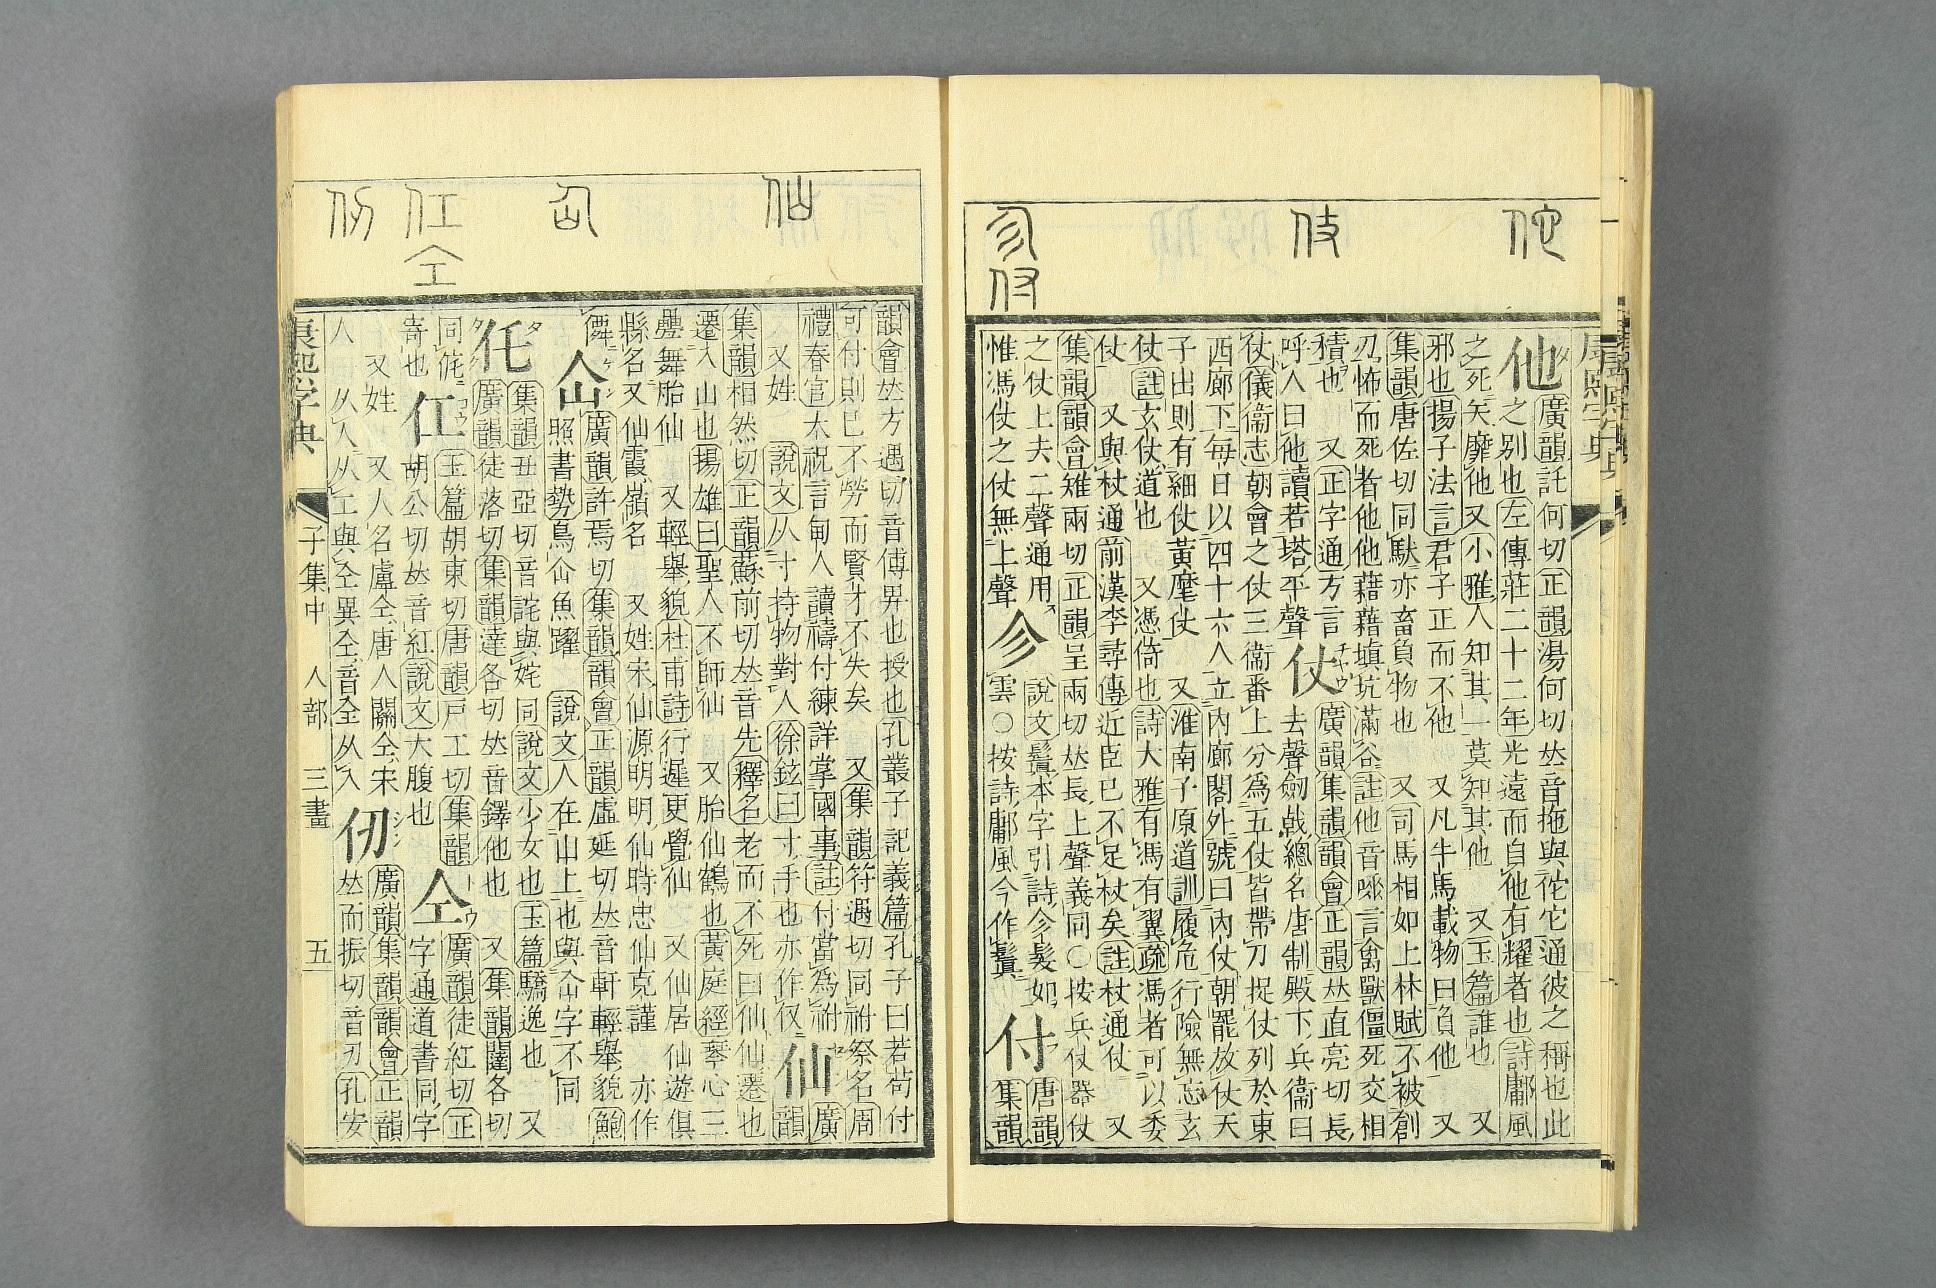 他
廣韻託何切正韻湯何切𠀤音拖與佗它通彼之稱也此
之別也左傳莊二十二年光遠而自他有耀者也詩鄘風
之死矢靡他又小雅人知其一莫知其他 又玉篇誰也 又
邪也揚子法言君子正而不他 又凡牛馬載物曰負他 又
集韻唐佐切同馱亦畜負物也 又司馬相如上林賦不被創
刃怖而死者他他藉藉塡坑滿谷註他音哆言禽獸僵死交相
積也 又正字通方言
呼人曰他讀若塔平聲
仗
廣韻集韻韻會正韻𠀤直亮切長
去聲劒戟總名唐制殿下兵衞曰
仗儀衞志朝會之仗三衞番上分爲五仗皆帶刀捉仗列於東
西廊下每日以四十六人立內廊閣外號曰內仗朝罷放仗天
子出則有細仗黃麾仗 又淮南子原道訓履危行險無忘玄
仗註玄仗道也 又憑倚也詩大雅有馮有翼疏馮者可以委
仗 又與杖通前漢李尋傳近臣已不足杖矣註杖通仗 又
集韻韻會雉兩切正韻呈兩切𠀤長上聲義同○按兵仗器仗
之仗上去二聲通用
惟馮仗之仗無上聲
㐱
說文鬒本字引詩㐱髮如
雲○按詩鄘風今作鬒
付
唐韻
集韻
韻會𠀤方遇切音傅畀也授也孔叢子記義篇孔子曰若苟付
可付則已不勞而賢才不失矣 又集韻符遇切同祔祭名周
禮春官大祝言甸人讀禱付練詳掌國事註付當爲祔
又姓 說文从寸持物對人徐鉉曰寸手也亦作仅
仙
廣
韻
集韻相然切正韻蘇前切𠀤音先釋名老而不死曰仙仙遷也
遷入山也揚雄曰聖人不師仙 又胎仙鶴也黃庭經琴心三
疊舞胎仙 又輕舉貌杜甫詩行遲更覺仙 又仙居仙遊俱
縣名又仙霞嶺名 又姓宋仙源明明仙時忠仙克謹 亦作
僊
仚
廣韻許焉切集韻韻會正韻虛延切𠀤音軒輕舉貌鮑
照書勢鳥仚魚躍 說文人在山上也與仚字不同
仛
集韻丑亞切音詫與姹同說文少女也玉篇驕逸也 又
廣韻徒落切集韻達各切𠀤音鐸他也 又集韻闥各切
同侂
仜
玉篇胡東切唐韻戸工切集韻
胡公切𠀤音紅說文大腹也
仝
廣韻徒紅切正
字通道書同字
寄也
又姓 又人名盧仝唐人關仝宋
人 从人从工與仝異仝音全从入
仞
廣韻集韻韻會正韻
𠀤而振切音刃孔安
康熙字典 子集中 人部 三畫 五